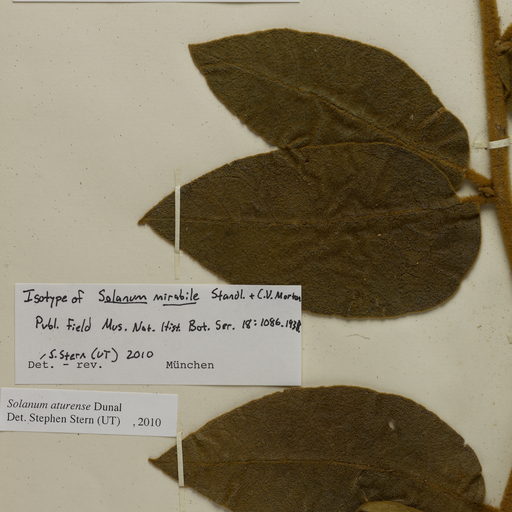 Isotype of Solanum mirabile Standl. + C.V. Morton
Publ. Field Mus. Nat. Hist. Bot. Ser. 18: 1086. 1938
, S. Stern (UT) 2010
Det. - rev. München
Solanum aturense Dunal
Det. Stephen Stern (UT) , 2010